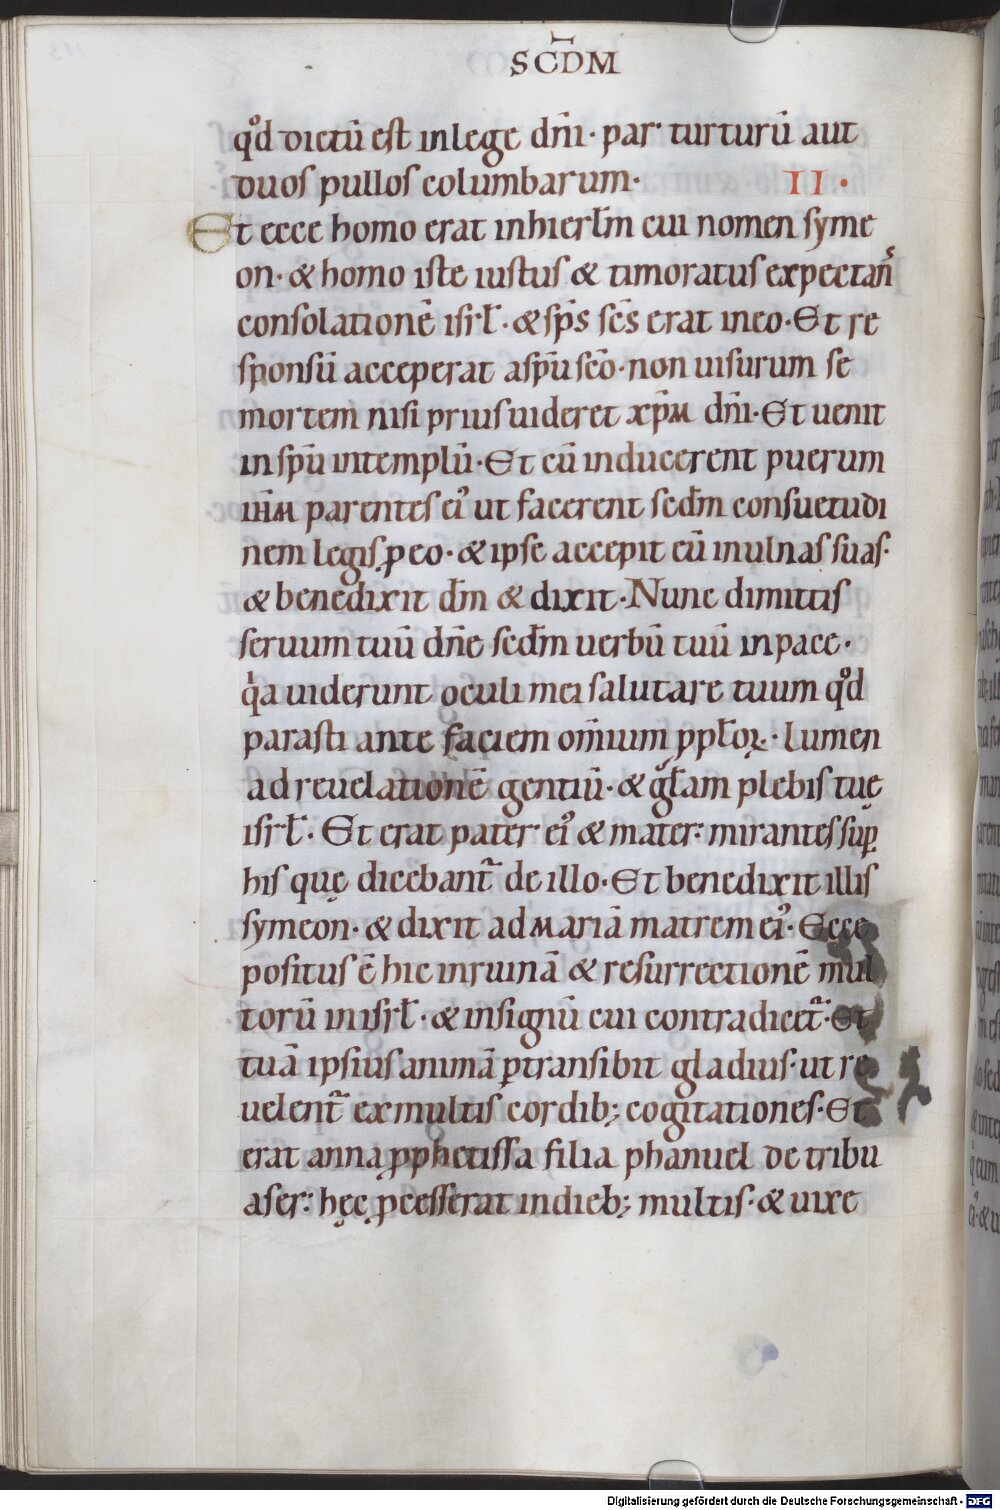 SCD̄M
qͦd dictū est inlege dn̄i · par turturū aut
duos pullos columbarum · II ·
Et ecce homo erat inhierl̄m cui nomen syme
on · & homo iste iustus & timoratus expectan̄s
consolationē isrl̄ · & sp̄s sc̄s erat ineo · Et re
sponsū acceperat asp̄u sc̄o · non uisurum se
mortem nisi prius uideret xp̄m dn̄i · Et uenit
insp̄u intemplū · Et cū inducerent puerum
ih̄m parentes ei᾽ ut facerent scdm̄ consuetudi
nem legis ꝓ eo · & ipse accepit eū inulnas suas ·
& benedixit dm̄ & dixit · Nunc dimittis
seruum tuū dn̄e scdm̄ uerbū tuū inpace ·
qͣa uiderunt oculi mei salutare tuum qͦd
parasti ante faciem om̄ium ppl̄oꝝ · Lumen
ad reuelationē gentiū · & gl̄am plebis tuę
isrl̄ · Et erat pater ei᾽ & mater : mirantes suꝑ
his quę dicebant᷑ de illo · Et benedixit illis
symeon · & dixit ad mariā matrem ei᾽ · Ecce
positus ē hic inruinā & resurrectionē mul
torū inisrl̄ · & insignū cui contradicet᷑ · Et
tuā ipsius animā ꝑtransibit gladius · ut re
uelent᷑ exmultis cordib; cogitationes · Et
erat anna ꝓphetissa filia phanuel de tribu
aser : hęc ꝓcesserat indieb; multis · & uixe
Digitalisierung gefördert durch die Deutsche Forschungsgemeinschaft - DFG